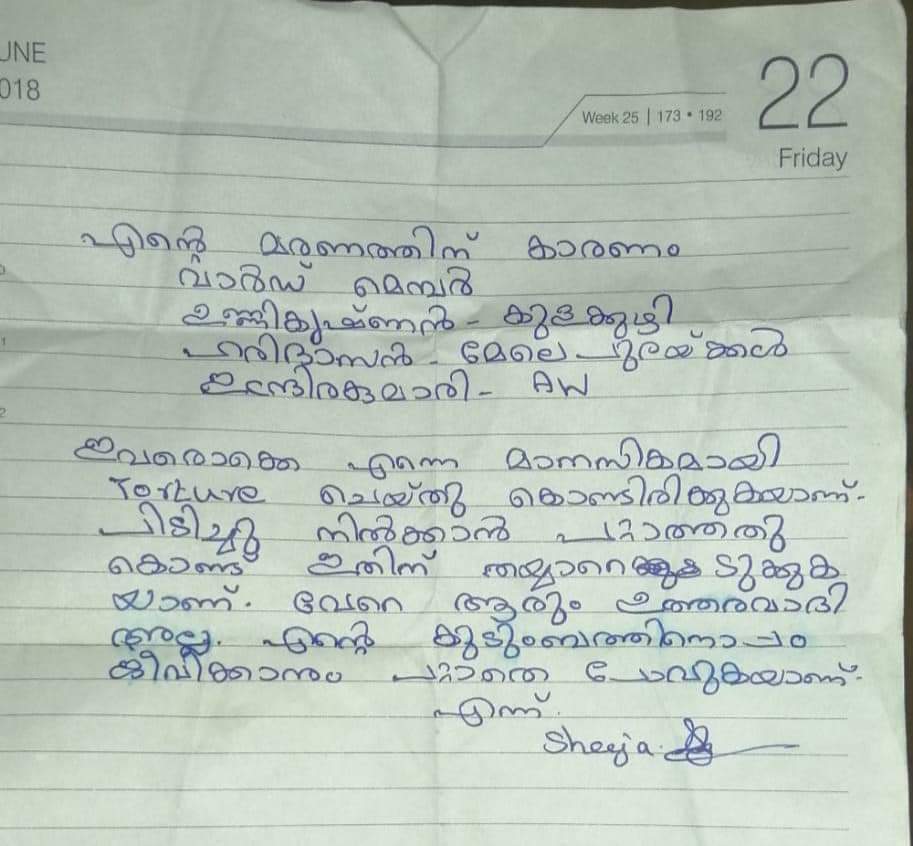 UNE
018
Week 25 | 173 • 192
22
Friday
എന്റെ മരണത്തിന് കാരണം
വാർഡ് മെമ്പർ
ഉണ്ണികൃഷ്ണൻ - കുളക്കുഴി
ഹരിദാസൻ - മേലെ പുരയ്ക്കൽ
ഇന്ദിരകുമാരി - AW
1
2
ഇവരൊക്കെ എന്നെ മാനസികമായി
Torture ചെയ്തു കൊണ്ടിരിക്കുകയാണ്.
പിടിച്ചു നിൽക്കാൻ പറ്റാത്തതു
കൊണ്ട് ഇതിന് തയ്യാറെടുക്കുക
യാണ്. വേറെ ആരും ഉത്തരവാദി
അല്ല. എന്റെ കുടുംബത്തിനൊപ്പം
ജീവിക്കാനും പറ്റാതെ പോവുകയാണ്.
എന്ന്.
Sheeja.